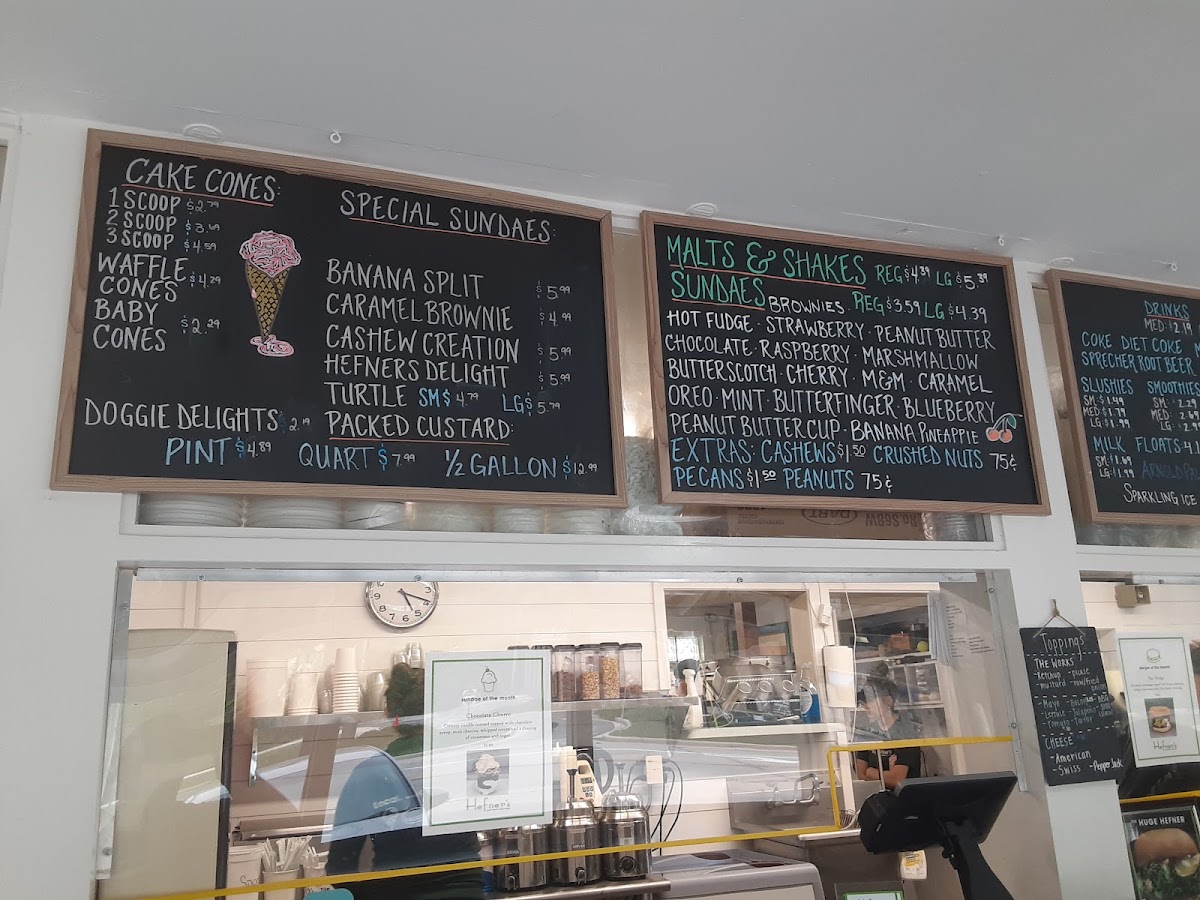 CAKE CONES:
1 SCOOP $2.79
2 SCOOP $3.69
3 SCOOP $4.59
WAFFLE CONES $4.29
BABY CONES $2.29
DOGGIE DELIGHTS $2.19
SPECIAL SUNDAES:
BANANA SPLIT $5.99
CARAMEL BROWNIE $4.99
CASHEW CREATION $5.99
HEFNERS DELIGHT $5.99
TURTLE SM $4.79 LG $5.79
PACKED CUSTARD:
PINT $4.89 QUART $7.99 1/2 GALLON $12.99
MALTS & SHAKES REG $4.39 LG $5.39
SUNDAES BROWNIES. REG $3.59 LG $4.39
HOT FUDGE · STRAWBERRY · PEANUT BUTTER
CHOCOLATE · RASPBERRY · MARSHMALLOW
BUTTERSCOTCH · CHERRY · M&M · CARAMEL
OREO · MINT · BUTTERFINGER · BLUEBERRY
PEANUT BUTTER CUP · BANANA PINEAPPLE
EXTRAS: CASHEWS $1.50 CRUSHED NUTS 75¢
PECANS $1.50 PEANUTS 75¢
DRINKS
MED: $2.19
COKE DIET COKE
SPRECHER ROOT BEER
SLUSHIES SMOOTHIES
SM: $1.49
MED: $1.79
LG: $1.99
MILK FLOATS
SM: $1.69
LG: $1.99
SPARKLING ICE
sundae of the month
Chocolate Churro
Hefner's
Toppings
THE WORKS
- Ketchup - pickle
- mustard - raw/fried onion
- Mayo
- Lettuce
- Tomato
CHEESE
- American
- Swiss - Pepper Jack
Hefner's
HUGE HEFNER